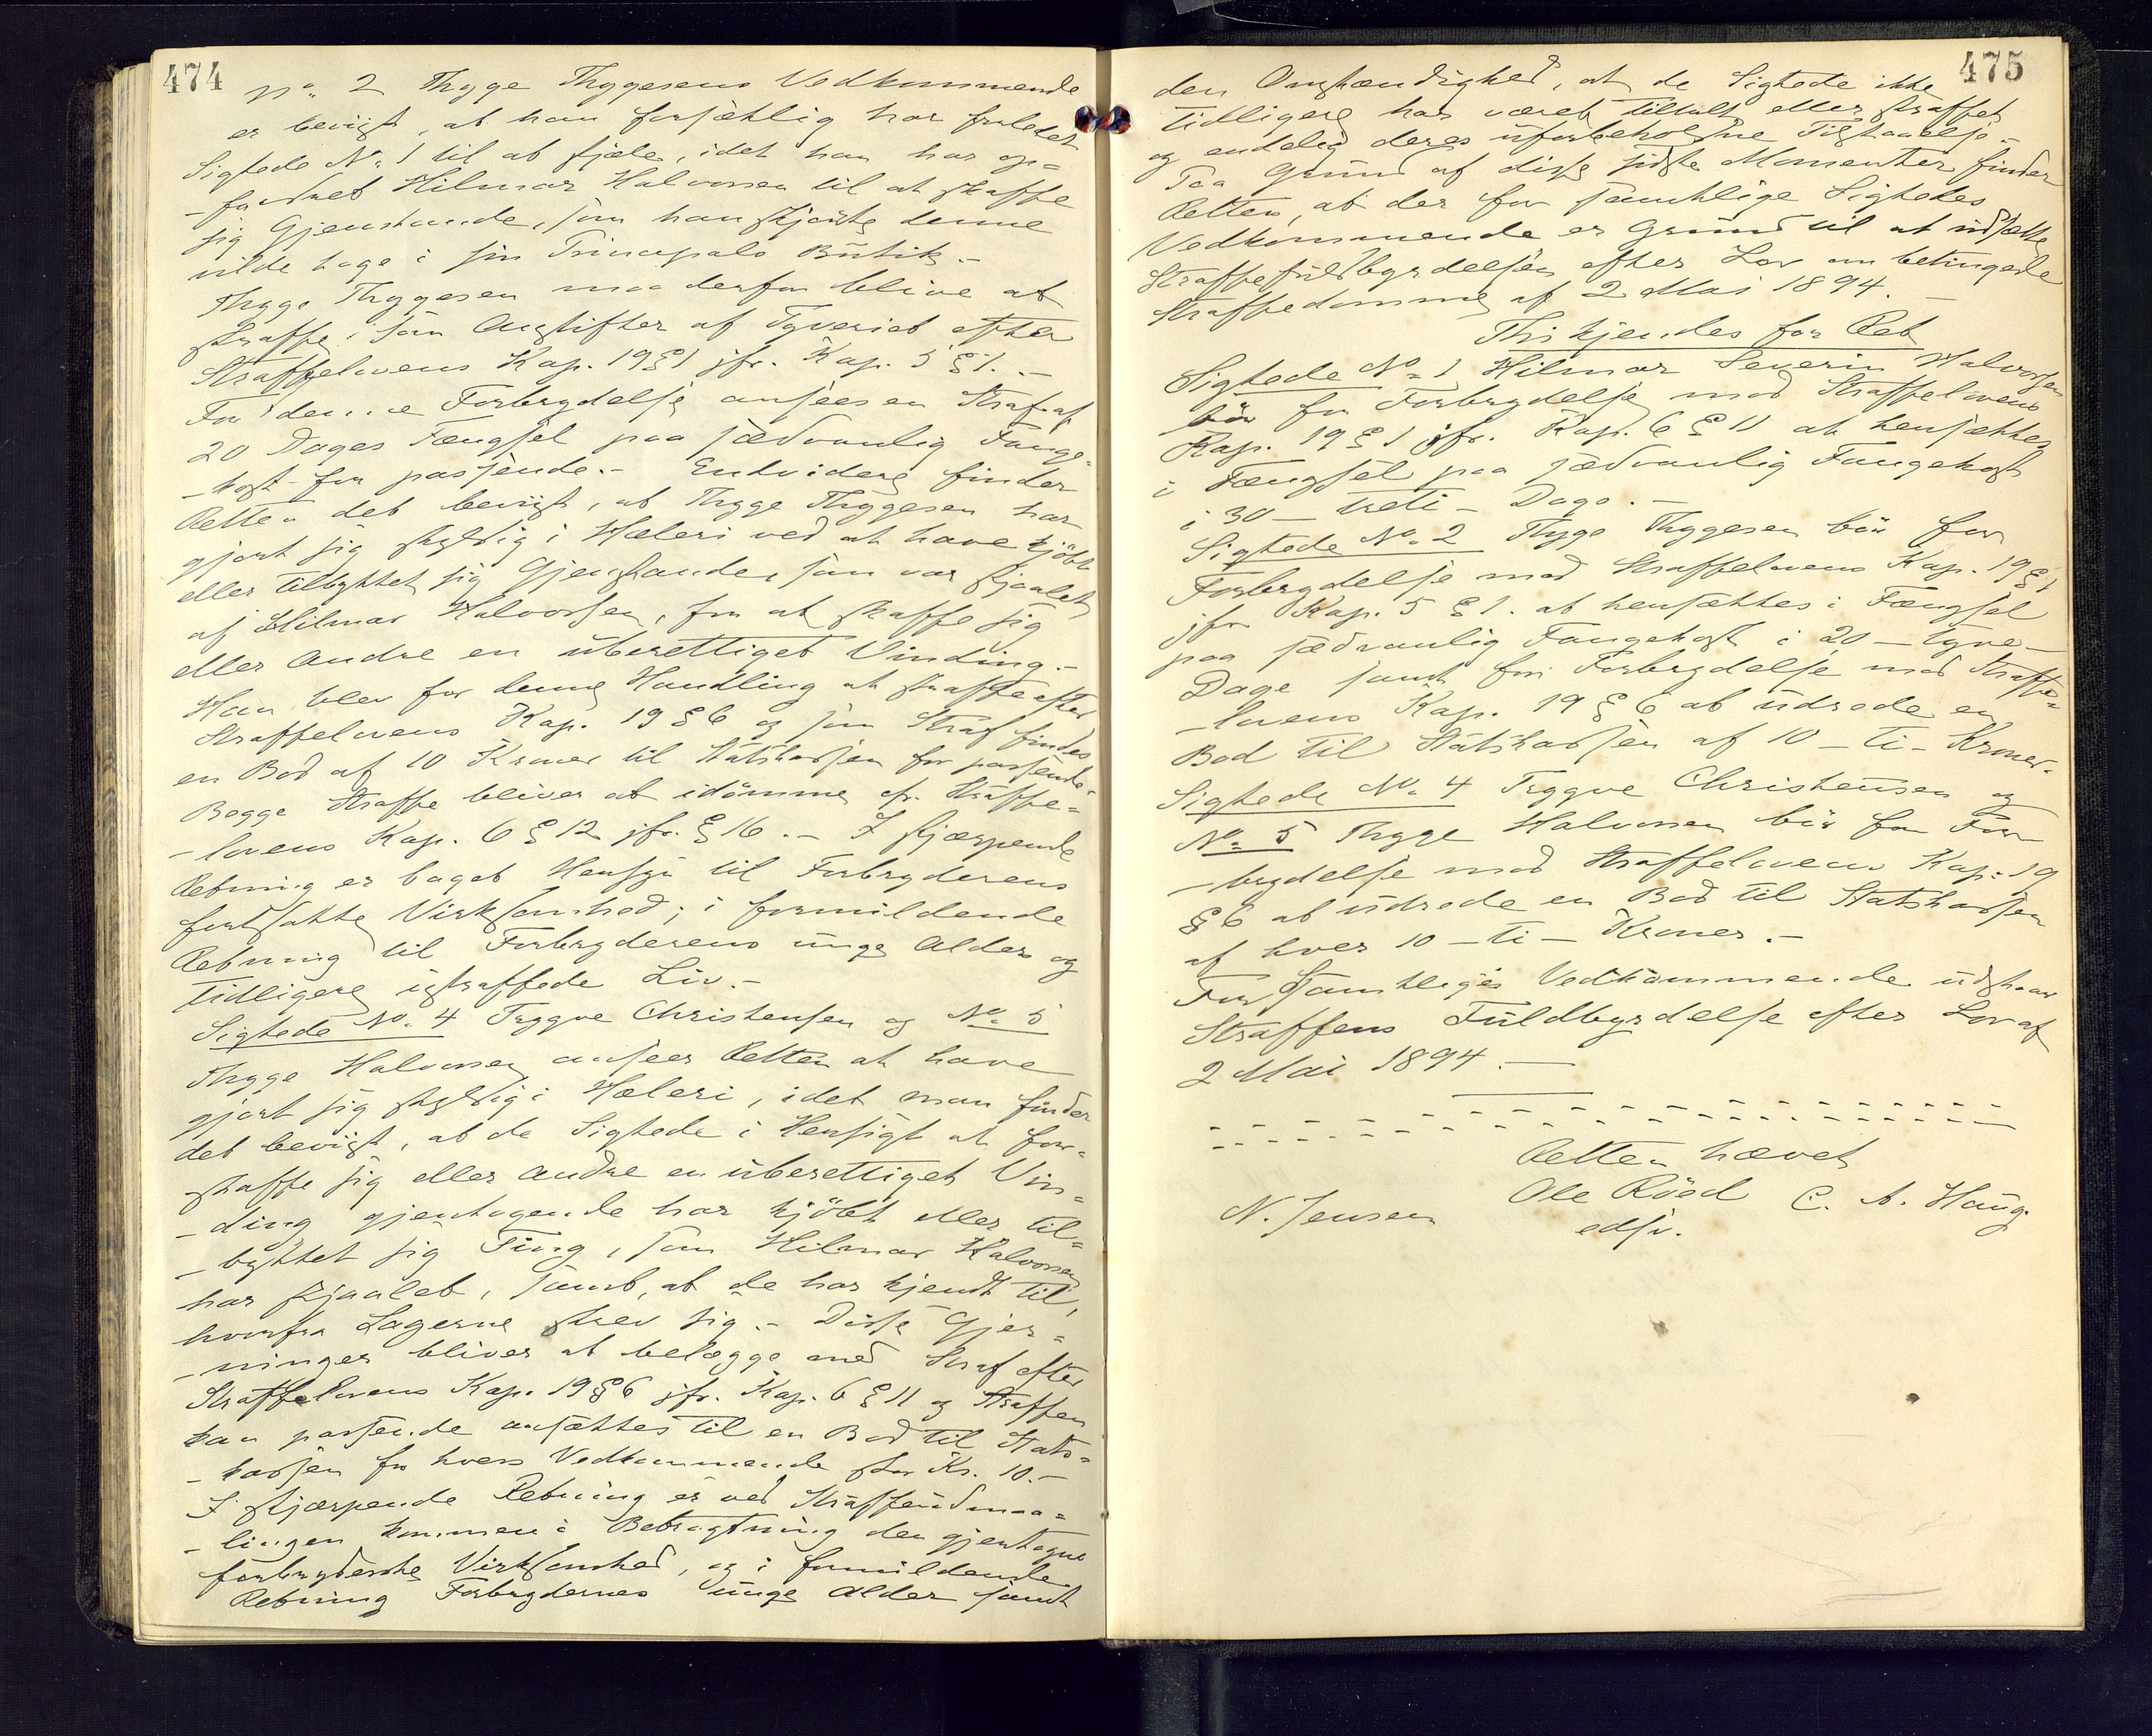 474
No. 2 Thyge Thygesens Vedkommende
er bevist, at han forsætlig har forledet
Sigtede No. 1 til at stjæle, idet han har op=
-fordret Hilmar Halvorsen til at skaffe
sig Gjenstande, som han skjønte denne
vilde tage i sin Principals Butik.-
Thyge Thygesen maa derfor blive at
straffe som Anstifter af Tyveriet efter
Straffelovens Kap. 19 § 1 jfr. Kap. 5 § 1.-
For denne Forbrydelse ansees en Straf af
20 Dages Fængsel paa sædvanlig Fange=
-kost for passende.- Endvidere finder
Retten det bevist, at Thyge Thygesen har
gjort sig skyldig i Hæleri ved at have kjøbt
eller tilbyttet sig Gjenstande, som var stjaalet
af Hilmar Halvorsen, for at skaffe sig
eller Andre en uberettiget Vinding.-
Han blev for denne Handling at straffe efter
Straffelovens Kap. 19 § 6 og som Straf findes
en Bod af 10 Kroner til Statskassen for passende.
Begge Straffe bliver at idømme efr. Straffe=
-lovens Kap. 6 § 12 jfr. § 16.- I skjærpende
Retning er taget Hensyn til Forbryderens
fortsatte Virksomhed; i formildende
Retning til Forbryderens unge Alder og
tidligere ustraffede Liv.-
Sigtede No. 4 Trygve Christensen og No. 5
Thyge Halvorsen ansees Retten at have
gjort sig skyldig i Hæleri, idet man finder
det bevist, at de Sigtede i Hensigt at for=
skaffe sig eller andre en uberettiget Vin=
-ding gjentagende har kjøbt eller til=
-byttet sig Ting, som Hilmar Halvorsen
har stjaalet, samt, at de har kjendt til,
hvorfra Sagerne skrev sig.- Disse Gjer=
-ninger bliver at belægge med Straf efter
Straffelovens Kap. 19 § 6 jfr. Kap. 6 § 11 og Straffen
kan passende ansættes til en Bod til Stats=
-kassen for hvers Vedkommende stor Kr. 10.-
I skjærpende Retning er ved Straffeudmaa=
-lingen kommen i Betragtning den gjentagne
forbryderske Virksomhed, og i formildende
Retning Forbrydernes unge Alder samt
475
den Omstændighed, at de Sigtede ikke
tidligere har været tiltalt eller straffet
og endelig deres uforbeholdne Tilstaaelse.-
Paa Grund af disse sidste Momenter finder
Retten, at der for samtlige Sigtedes
Vedkommende er Grund til at udsætte
Straffefuldbyrdelsen efter Lov om betingede
Straffedomme af 2 Mai 1894.-
Thi kjendes for Ret
Sigtede No. 1 Hilmar Severin Halvorsen
bør for Forbrydelse mod Straffelovens
Kap. 19 § 1 jfr. Kap. 6 § 11 at hensættes
i Fængsel paa sædvanlig Fangekost
i 30 - treti - Dage.-
Sigtede No. 2 Thyge Thygesen bør for
Forbrydelse mod Straffelovens Kap. 19 § 1
jfr Kap. 5 § 1. at hensættes i Fængsel
paa sædvanlig Fangekost i 20 - tyve -
Dage samt for Forbrydelse mod Straffe=
-lovens Kap. 19 § 6 at udrede en
Bod til Statskassen af 10 - ti - Kroner.
Sigtede No. 4 Trygve Christensen og
No. 5 Thyge Halvorsen bør for For
-brydelse mod Straffelovens Kap. 19
§ 6 at udrede en Bod til Statskassen
af hver 10 - ti - Kroner.-
For Samtliges Vedkommende udstaar
Straffens Fuldbyrdelse efter Lov af
2 Mai 1894.-
Retten hævet
N. Jensen Ole Röed C. A. Haug
edsv.